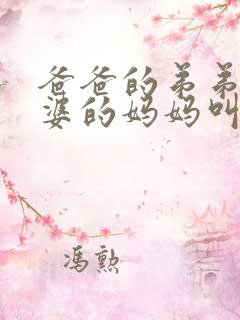 爸爸的弟弟
婆的妈妈叫
冯勲